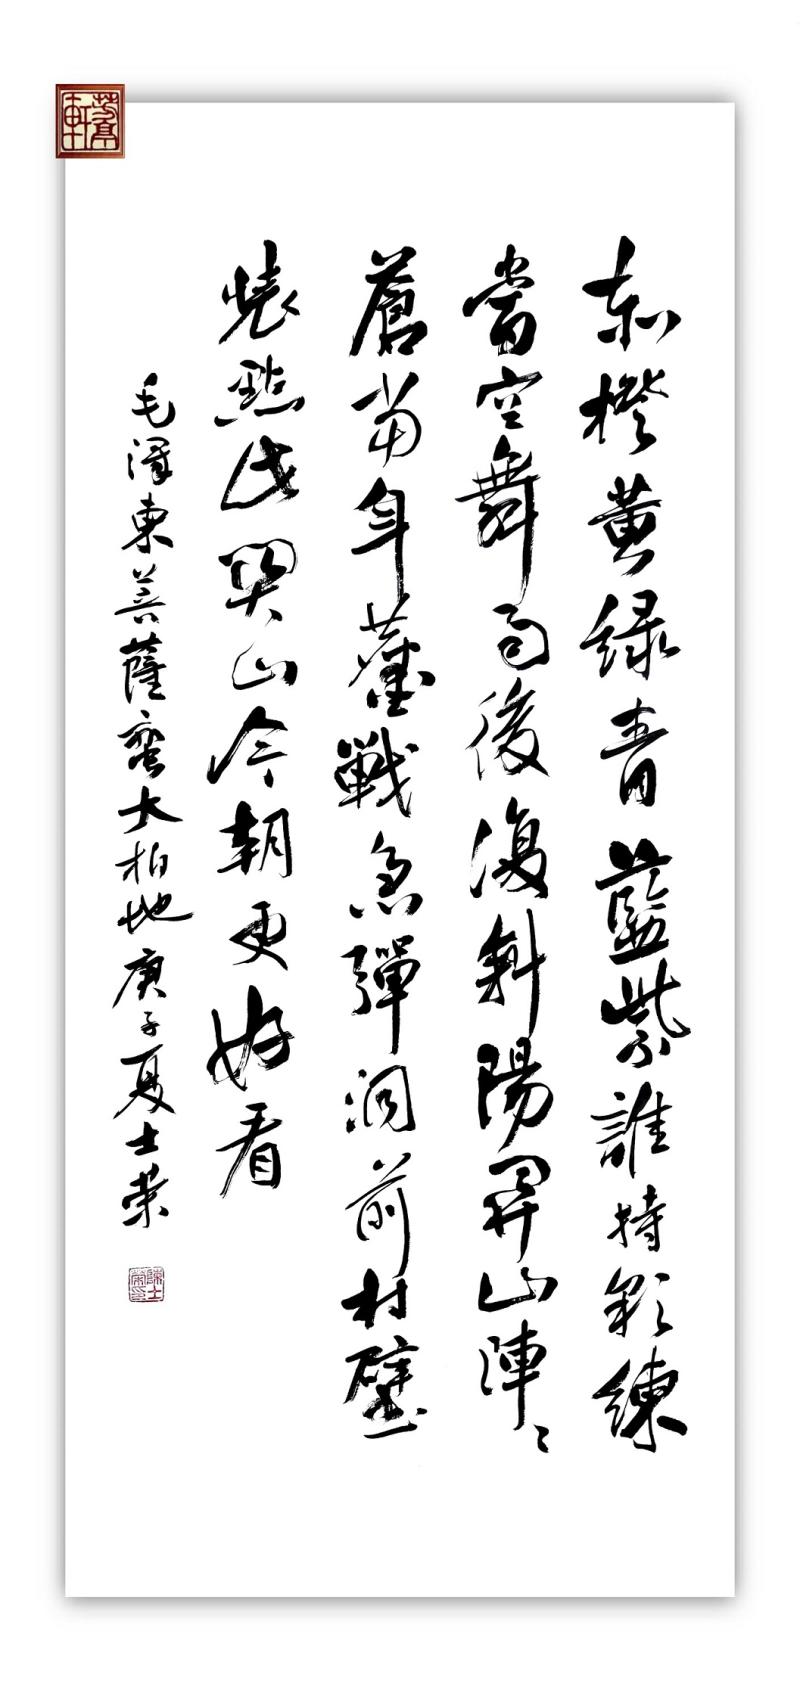 赤橙黃綠青藍紫誰持彩練
當空舞雨後復斜陽關山陣〻
蒼當年鏖戰急彈洞前村壁
裝點此關山今朝更好看
毛澤東菩薩蠻大柏地庚子夏士榮
陳士榮印